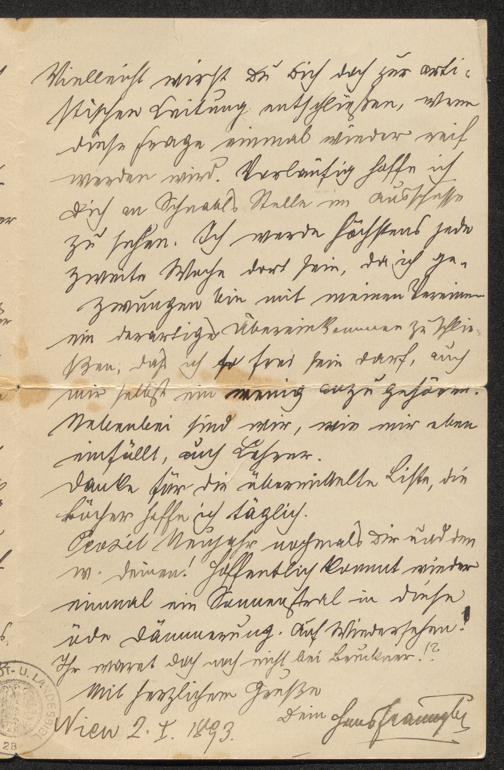 Vielleicht wirst Du Dich doch zur arti-
stischen Leitung entschließen, wenn
diese Frage einmal wieder reif
werden wird. Vorläufig hoffe ich
Dich an Schnabls Stelle im Ausschusse
zu sehen. Ich werde höchstens jede
zweite Woche dort sein, da ich ge-
zwungen bin mit meinen Vereinen
ein derartiges Übereinkommen zu schlie-
ßen, daß ich so frei sein darf, auch
mir selbst ein wenig anzugehören.
Nebenbei sind wir, wie mir eben
einfällt, auch Lehrer.
Danke für die übermittelte Liste, die
Bücher hoffe ich täglich.
Prosit Neujahr nochmals Dir und den
w. Deinen! Hoffentlich kommt wieder
einmal ein Sonnenstral in diese
öde Dämmerung. Auf Wiedersehen!
Ihr waret doch noch nicht bei Bruckner!?
Mit herzlichem Gruße
Dein Hans
Wien 2. I. 1893.